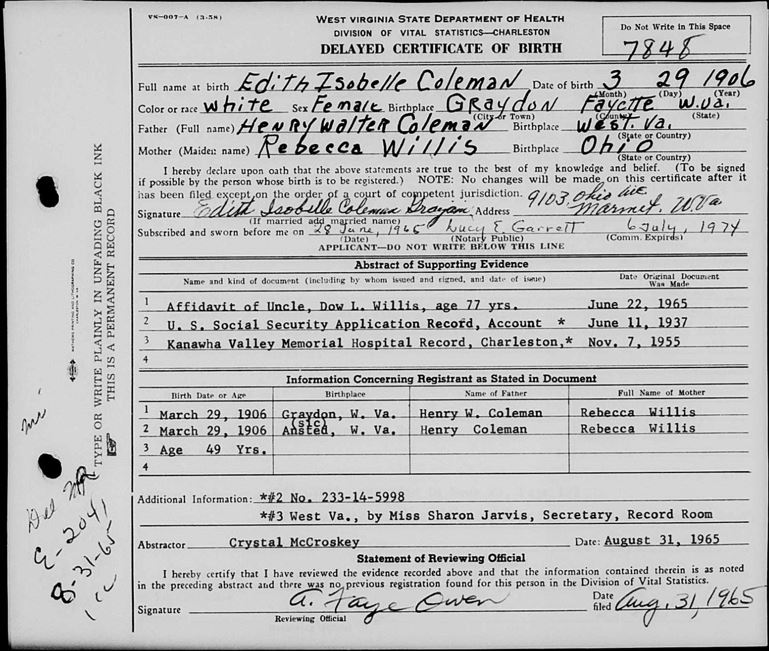 VS-007-A (3-58)
WEST VIRGINIA STATE DEPARTMENT OF HEALTH
DIVISION OF VITAL STATISTICS—CHARLESTON
DELAYED CERTIFICATE OF BIRTH
Do Not Write in This Space
7848
Full name at birth Edith Isobelle Coleman Date of birth 3 29 1906
(Month) (Day) (Year)
Color or race White Sex Female Birthplace Graydon Fayette W.Va.
(City or Town) (County) (State)
Father (Full name) Henry Walter Coleman Birthplace West. Va.
(State or Country)
Mother (Maiden name) Rebecca Willis Birthplace Ohio
(State or Country)
I hereby declare upon oath that the above statements are true to the best of my knowledge and belief. (To be signed
if possible by the person whose birth is to be registered.) NOTE: No changes will be made on this certificate after it
has been filed except on the order of a court of competent jurisdiction. 9103 Ohio Ave
Signature Edith Isobelle Coleman Address Marmet, W.Va
(If married add married name)
Subscribed and sworn before me on 28 June, 1965 Lucy E. Garrett 6 July, 1974
(Date) (Notary Public) (Comm. Expires)
APPLICANT—DO NOT WRITE BELOW THIS LINE
Abstract of Supporting Evidence
Name and kind of document (including by whom issued and signed, and date of issue) Date Original Document
Was Made
1 Affidavit of Uncle, Dow L. Willis, age 77 yrs. June 22, 1965
2 U. S. Social Security Application Record, Account * June 11, 1937
3 Kanawha Valley Memorial Hospital Record, Charleston,* Nov. 7, 1955
4
Information Concerning Registrant as Stated in Document
Birth Date or Age Birthplace Name of Father Full Name of Mother
1 March 29, 1906 Graydon, W. Va. Henry W. Coleman Rebecca Willis
(sic)
2 March 29, 1906 Ansted, W. Va. Henry Coleman Rebecca Willis
3 Age 49 Yrs.
4
Additional Information: *#2 No. 233-14-5998
*#3 West Va., by Miss Sharon Jarvis, Secretary, Record Room
Abstractor Crystal McCroskey Date: August 31, 1965
Statement of Reviewing Official
I hereby certify that I have reviewed the evidence recorded above and that the information contained therein is as noted
in the preceding abstract and there was no previous registration found for this person in the Division of Vital Statistics.
Signature A. Faye Owen Date filed Aug. 31, 1965
Reviewing Official
TYPE OR WRITE PLAINLY IN UNFADING BLACK INK
THIS IS A PERMANENT RECORD
E-2041
8-31-65
1 cc